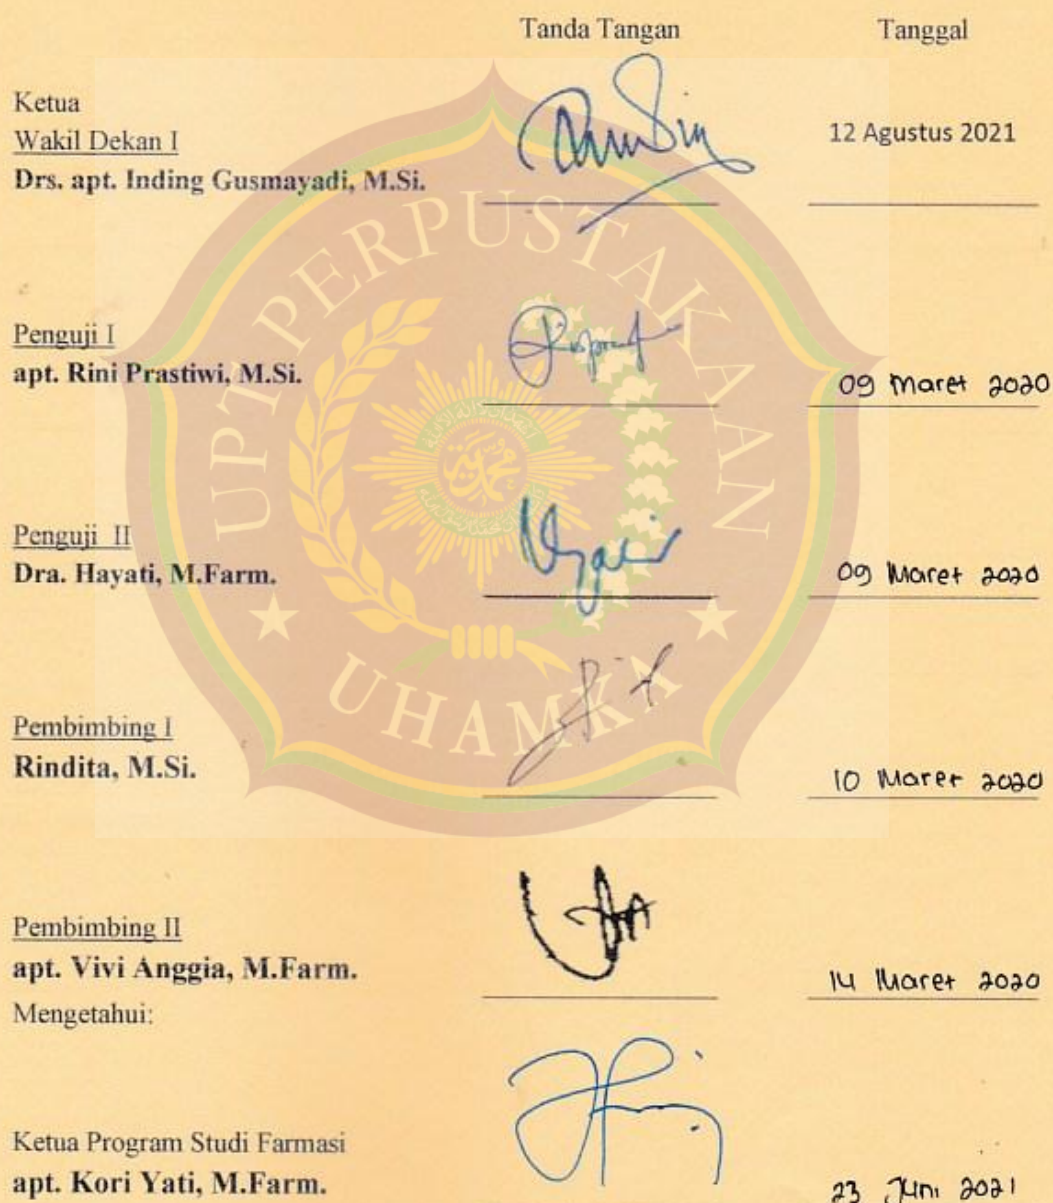 Tanda Tangan Tanggal
Ketua
Wakil Dekan I
12 Agustus 2021
Drs. apt. Inding Gusmayadi, M.Si.
UPT PERPUSTAKAAN
Penguji I
apt. Rini Prastiwi, M.Si.
09 Maret 2020
Penguji II
Dra. Hayati, M.Farm.
09 Maret 2020
UHAMKA
Pembimbing I
Rindita, M.Si.
10 Maret 2020
Pembimbing II
apt. Vivi Anggia, M.Farm.
14 Maret 2020
Mengetahui:
Ketua Program Studi Farmasi
apt. Kori Yati, M.Farm.
23 Juni 2021